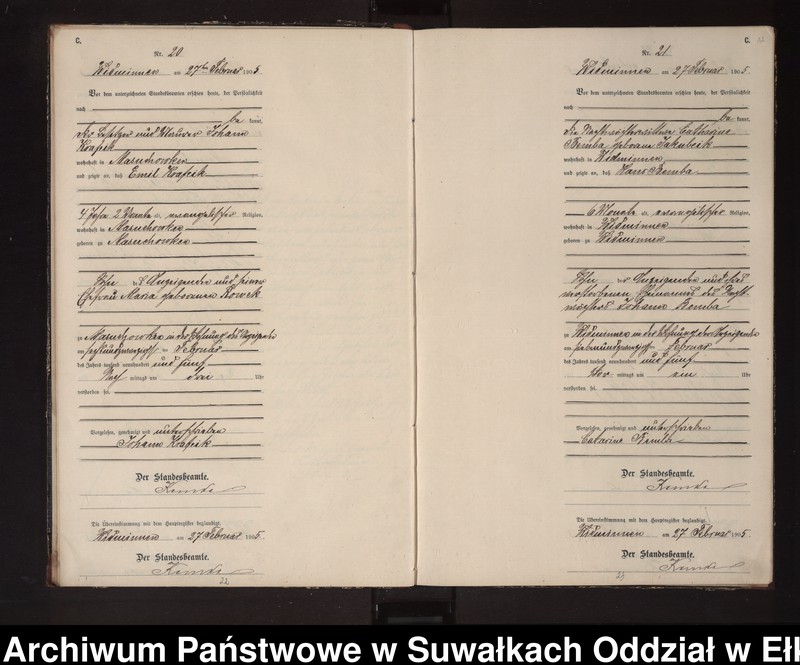 C.
Nr. 20
Widminnen am 27ten Februar 1905
Vor dem unterzeichneten Standesbeamten erschien heute, der Persönlichkeit
nach
be kannt,
der Besitzer und Maurer Johann
wohnhaft in Maruchowken
und zeigte an, daß Emil
4 Jahre 2 Monate alt, evangelischer Religion,
wohnhaft in Maruchowken
geboren zu Maruchowken
Sohn des Anzeigenden und seiner
Ehefrau Maria geborenen
zu Maruchowken in der Wohnung des Anzeigenden
am sechsundzwanzigsten Februar
des Jahres tausend neunhundert und fünf
Nach mittags um drei Uhr
verstorben sei.
Vorgelesen, genehmigt und unterschrieben
Johann
Der Standesbeamte.
Die Übereinstimmung mit dem Hauptregister beglaubigt.
Widminnen am 27 Februar 1905.
Der Standesbeamte.
22
C.
Nr. 21
Widminnen am 27 Februar 1905
Vor dem unterzeichneten Standesbeamten erschien heute, der Persönlichkeit
nach
be kannt,
die Catharine
Bemba geborene Jakubzik
wohnhaft in Widminnen
und zeigte an, daß Hans Bemba
6 Monate alt, evangelischer Religion,
wohnhaft in Widminnen
geboren zu Widminnen
Sohn der Anzeigenden und ihres
verstorbenen Ehemannes des
Johann Bemba
zu Widminnen in der Wohnung der Anzeigenden
am siebenundzwanzigsten Februar
des Jahres tausend neunhundert und fünf
Vor mittags um ein Uhr
verstorben sei.
Vorgelesen, genehmigt und unterschrieben
Catarine Bemba
Der Standesbeamte.
Die Übereinstimmung mit dem Hauptregister beglaubigt.
Widminnen am 27 Februar 1905.
Der Standesbeamte.
Archiwum Państwowe w Suwałkach Oddział w Eł